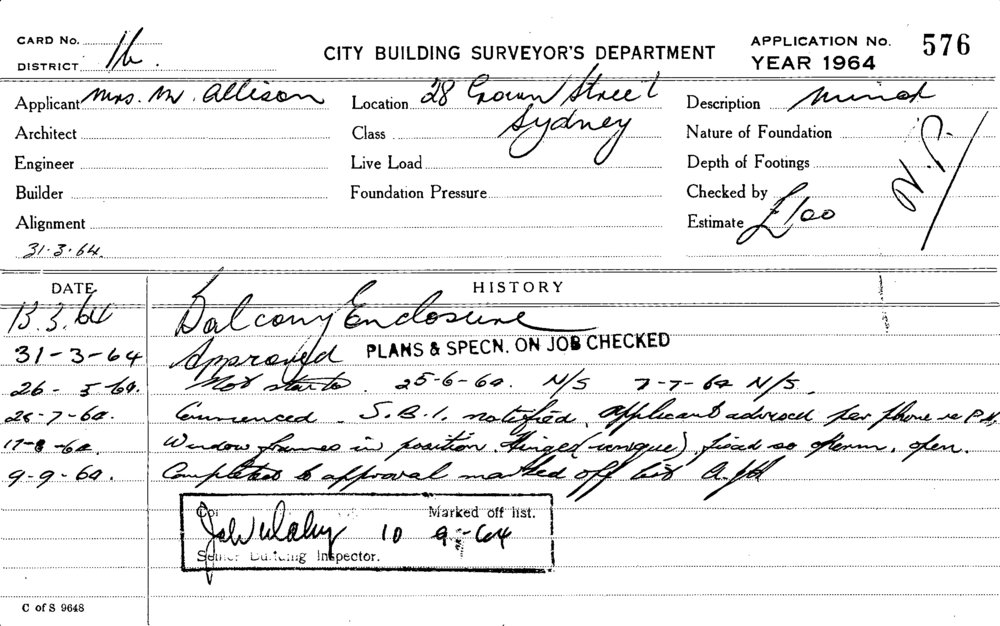 CARD No.
DISTRICT 16.
CITY BUILDING SURVEYOR'S DEPARTMENT
APPLICATION No. 576
YEAR 1964
Applicant Mrs. M. Allison
Location 28 Crown Street
Sydney
Description Minor
Architect
Class
Nature of Foundation
N.P.
Engineer
Live Load
Depth of Footings
Builder
Foundation Pressure
Checked by
Alignment
Estimate £100
31.3.64.
DATE
HISTORY
13.3.64 Balcony Enclosure
31-3-64 Approved PLANS & SPECN. ON JOB CHECKED
26-5-64. Not started. 25-6-64. N/S 7-7-64 N/S.
Commenced. S.B.I. notified, applicant advised per phone re
17-8-64. Window frames in position. Hinged fixed so open.
9-9-64. Completed to approval marked off list
Marked off list.
10 9-64
Senior Building Inspector.
C of S 9648